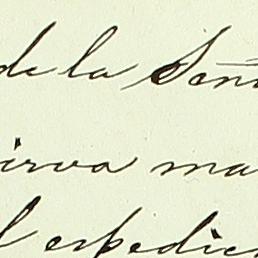 de la Señ
irva ma
l expedie